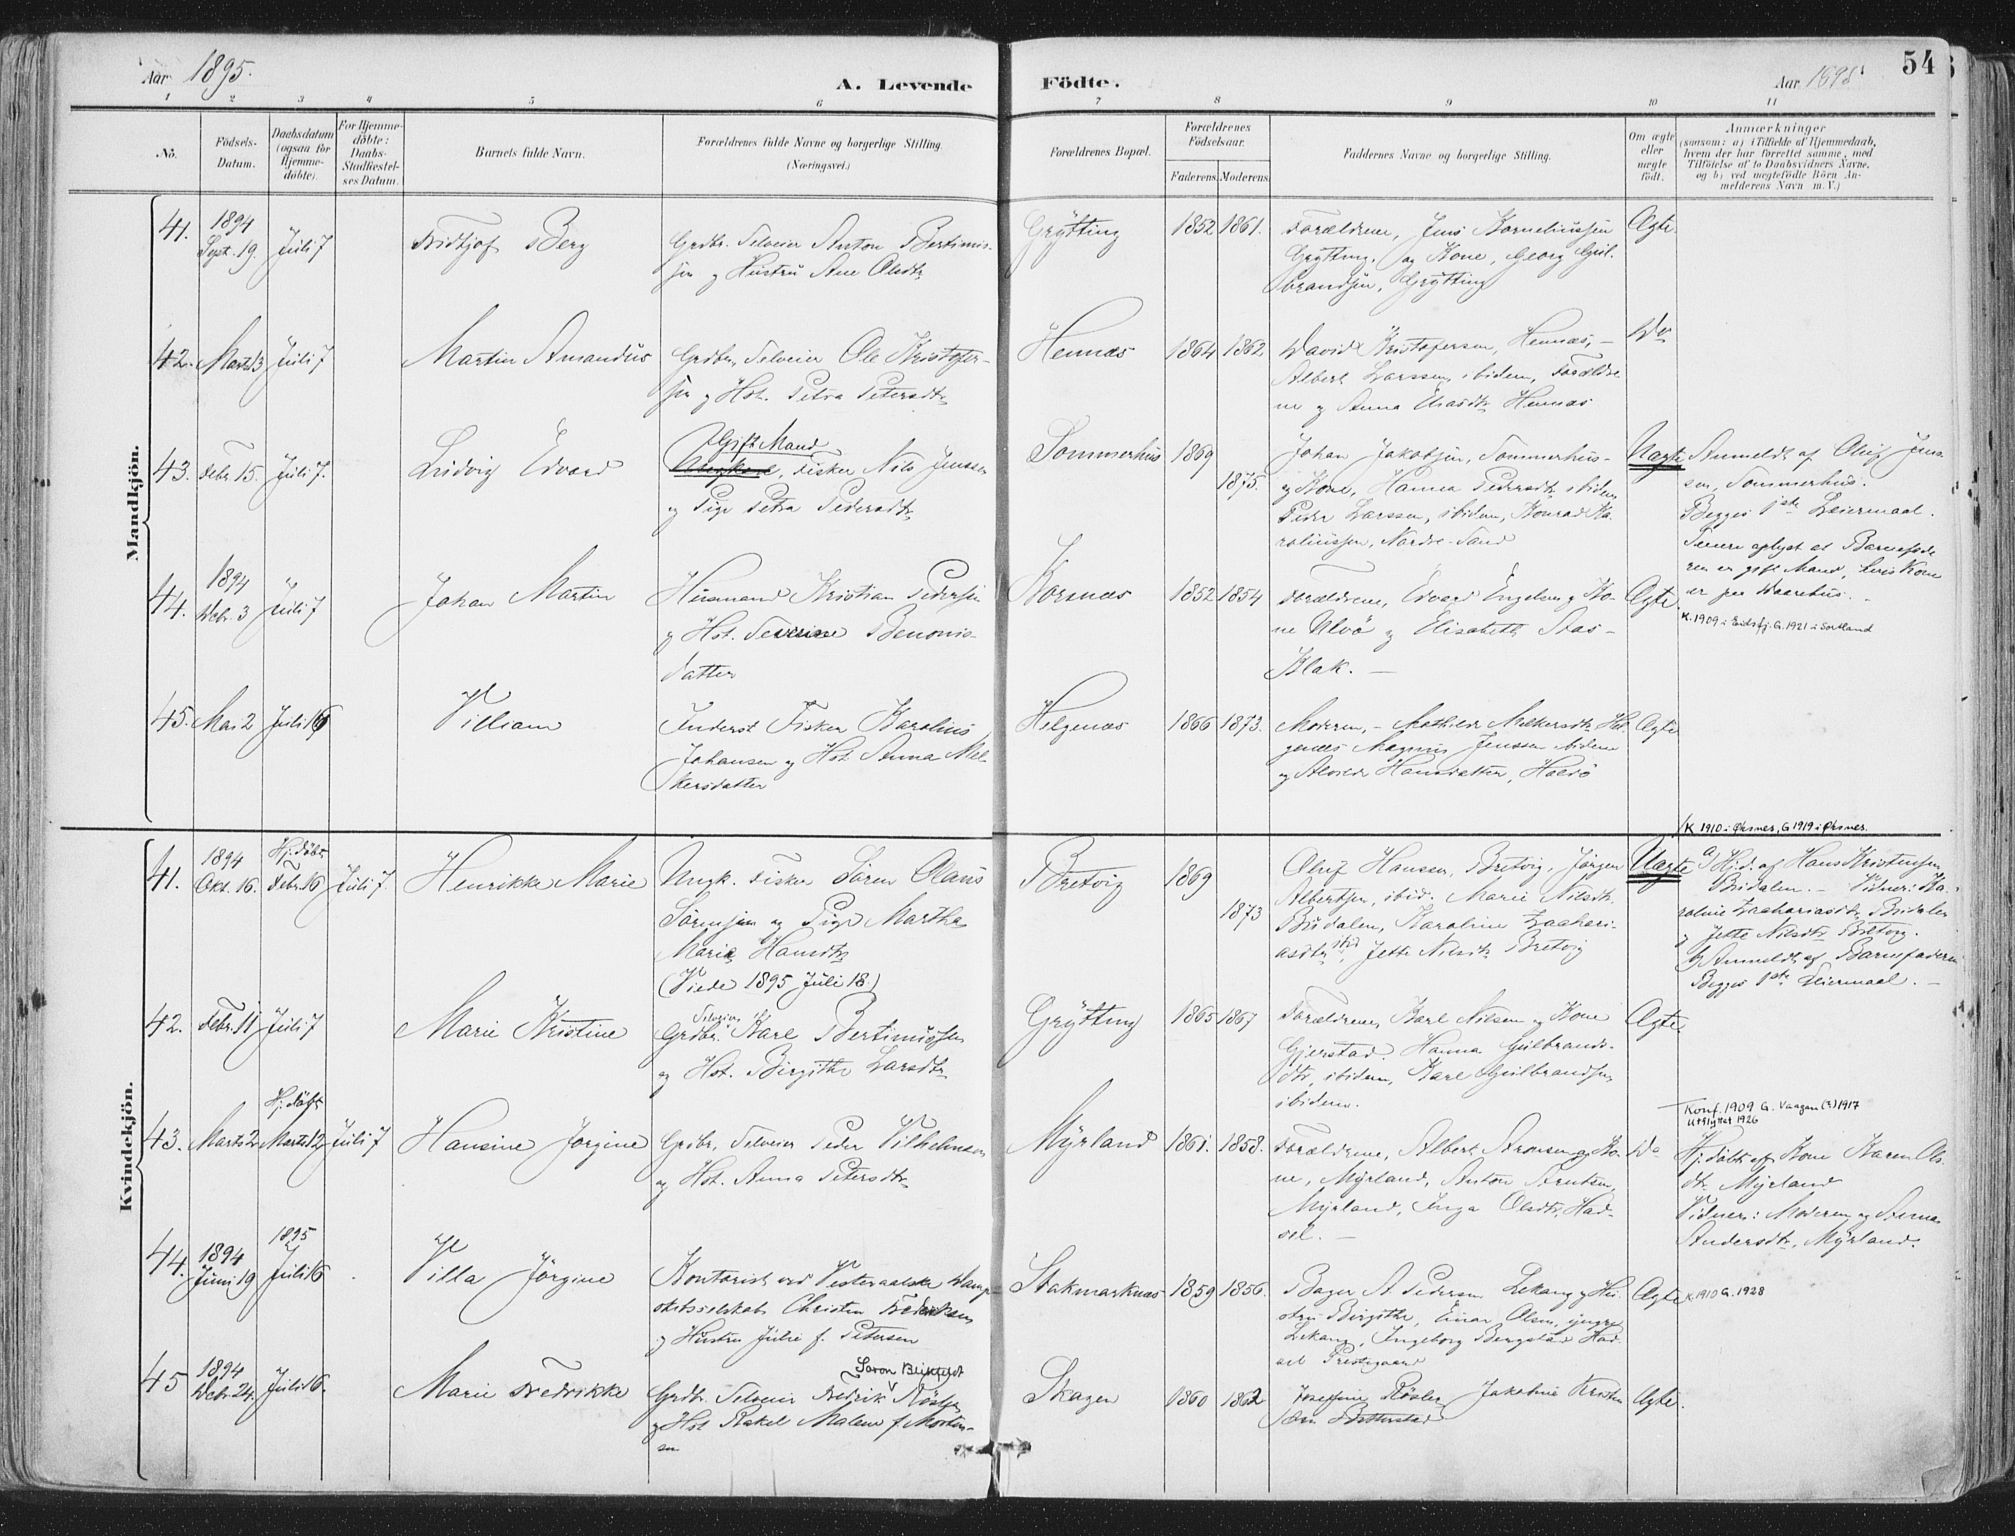 Aar 1895.
A. Levende Födte.
Aar 1895.
54
1 2 3 4 5 6 7 8 9 10 11
No.
Födsels-Datum.
Daabsdatum (ogsaa for Hjemme-döbte).
For Hjemme-döbte: Daabs-Stadfæstel-ses Datum.
Barnets fulde Navn.
Forældrenes fulde Navne og borgerlige Stilling. (Næringsvei.)
Forældrenes Bopæl.
Forældrenes Födselsaar.
Faderens. Moderens.
Faddernes Navne og borgerlige Stilling.
Om ægte eller uægte födt.
Anmærkninger
(saasom: a) i Tilfælde af Hjemmedaab,
hvem der har forrettet samme, med
Tilföielse af to Daabsvidners Navne,
og b) ved uægtefödte Börn An-
melderens Navn m. V.)
Mandkjön.
41.
1894
Sept. 19.
Juli 7
Fridtjof Berg
Grdbr. Selveier Anton Bertinus-
sen og Hustru Ane Olsdtr
Grÿtting
1852
1861.
Forældrene, Jens Korneliussen
Grÿtting, og Kone, Georg Gul-
brandsen, Grÿtting
Ægte
42.
Marts 3
Juli 7
Martin Amandus
Grdbr. Selveier Ole Kristofer-
sen og Hst. Petra Petersdtr
Hennæs
1864
1862
David Kristofersen, Hennæs, –
Albert Larssen, ibidem, Forældre
ne og Anna Hennæs
Do
43.
Febr. 15.
Juli 7.
Ludvig Edvard
Gift Mand
Ungkarl, Fisker Nils Jenssen
og Pige Petra Pedersdtr
Sommerhus
1869
1875.
Johan Jakobsen, Sommerhus-
og Kone, Hanna Pedersdtr ibidem
Peder Larssen, ibidem, Konrad Ka-
roliussen, Nordre-Sand
Uægte
Anmeldt af Oluf Jens
sen, Sommerhus.
Begges 1ste Leiermaal.
Senere oplyst at Barnefade
ren er gift Mand, hvis Kone
er paa
K. 1909 i Eidsfj. G. 1921 i Sortland
44.
1894
Debr. 3
Juli 7
Johan Martin
Husmand Kristian Pedersen
og Hst. Severine Benonis-
datter
Korsnæs
1852
1854
Forældrene, Edvard Engelsen og Ko-
ne Ulvö og Elisabeth Stas-
Klak. –
Ægte.
45.
Mai 2
Juli 16
Villiam
Inderst Fisker Karolius
Johansen og Hst. Anna Mel
kersdatter
Helgenæs
1866
1873.
Moderen, – Mathilde Melkersdtr Hel
genæs Magnus Jenssen ibidem
og Hansdatter, Hadsö
Ægte
Kvindekjön.
K 1910 i Øksnes, G 1919 i Øksnes.
41.
1894
Okt. 16.
Hj. döbt
Febr. 16
Juli 7
Henrikke Marie
Ungk. Fisker Sören Olaus
Sörensen og Pige Martha
Maria Hansdtr
(Viede 1895 Juli 18.)
Bretvig
1869
1873
Oluf Hanssen, Bretvig, Jörgen
Albertsen, ibid. Marie Nilsdtr.
Budalen, Karoline Zachari-
asdtr ibid, Jette Nilsdtr Bretvig
Uægte
a) Hjd. af Hans Kristensen
Budalen. – Vidner: Ka-
roline Zachariasdtr Budalen
og Jette Nilsdtr Bretvig.
b) Anmeldt af Barnefaderen
Begges 1ste Leiermaal. –
42.
Febr. 11
Juli 7
Marie Kristine
Selveier
Grdbr. Karl Bertinussen
og Hst. Birgithe Larsdtr
Grÿtting
1865
1867
Forældrene, Karl Nilsen og Kone
Gjerstad. Hanna Gulbrands-
dtr, ibidem, Karl Gulbrandsen
ibidem.
Ægte.
Konf. 1909 G. Vaagan (?) 1917
Utflyttet 1926
43.
Marts 2
Hj. döbt
Marts 12
Juli 7
Hansine Jörgine
Grdbr. Selveier Peder Vilhelmsen
og Hst. Anna Petersdtr
Mÿrland
1861.
1858.
Forældrene, Albert Aronsen og Ko-
ne, Mÿrland, Anton Arntsen,
Mÿrland, Inga Olsdtr, Had-
sel. –
Do
Hj. döbt af Kone Karen Ols
dtr Mÿrland
Vidner: Moderen og Anna
Andersdtr, Mÿrland.
44.
1894
Juni 19
1895
Juli 16
Villa Jörgine
Kontorist ved Vesteraalske Damp
skibsselskab Christen Fredriksen
og Hustru Julie f. Petersen
Stokmarknæs
1859
1856.
Bager A Pedersen Lekang og Hu-
stru Birgithe, Einar Olsen, yngre
Lekang, Ingeborg Bergstad Had-
sel Prestegaard
Ægte
K. 1910 G. 1928
45
1894
Debr. 24.
Juli 16.
Marie Fredrikke
Søren Blikfeldt
Grdbr. Selveier Fredrik Rösler
og Hst Rakel Malene f. Morten-
sen
Skagen
1860
1862
Josefine Rösler Jakobine Kristen
sen
Ægte.